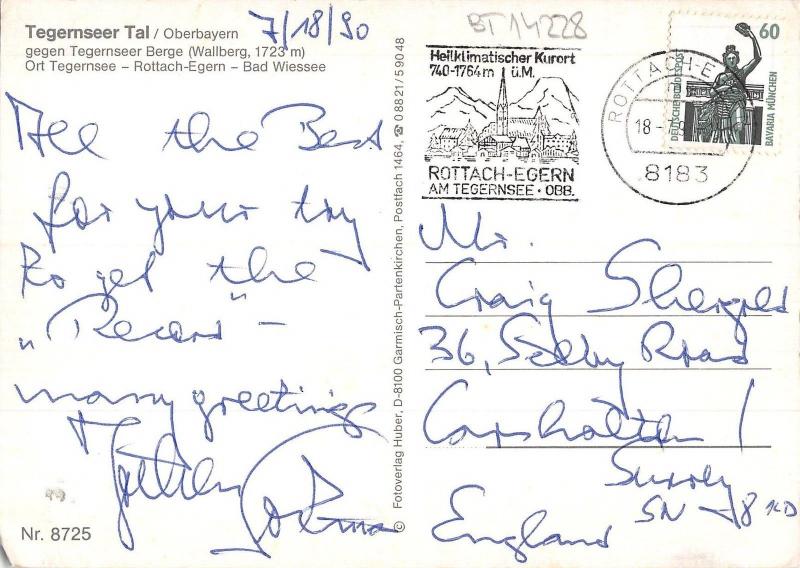 Tegernseer Tal / Oberbayern
gegen Tegernseer Berge (Wallberg, 1723 m)
Ort Tegernsee – Rottach-Egern – Bad Wiessee
7/18/90
BT 14228
All the Best
for your try
to get the
„Record" –
many greetings
Nr. 8725
© Fotoverlag Huber, D-8100 Garmisch-Partenkirchen, Postfach 1464, ☎ 0 88 21 / 5 90 48
Heilklimatischer Kurort
740-1764 m ü.M.
ROTTACH-EGERN
AM TEGERNSEE · OBB.
ROTTACH-E
18.-7
8183
60
DEUTSCHE BUNDESPOST
BAVARIA MÜNCHEN
Mr.
Craig Shergold
36, Selby Road
Carshalton /
Surrey
SN – 8 1LD
England